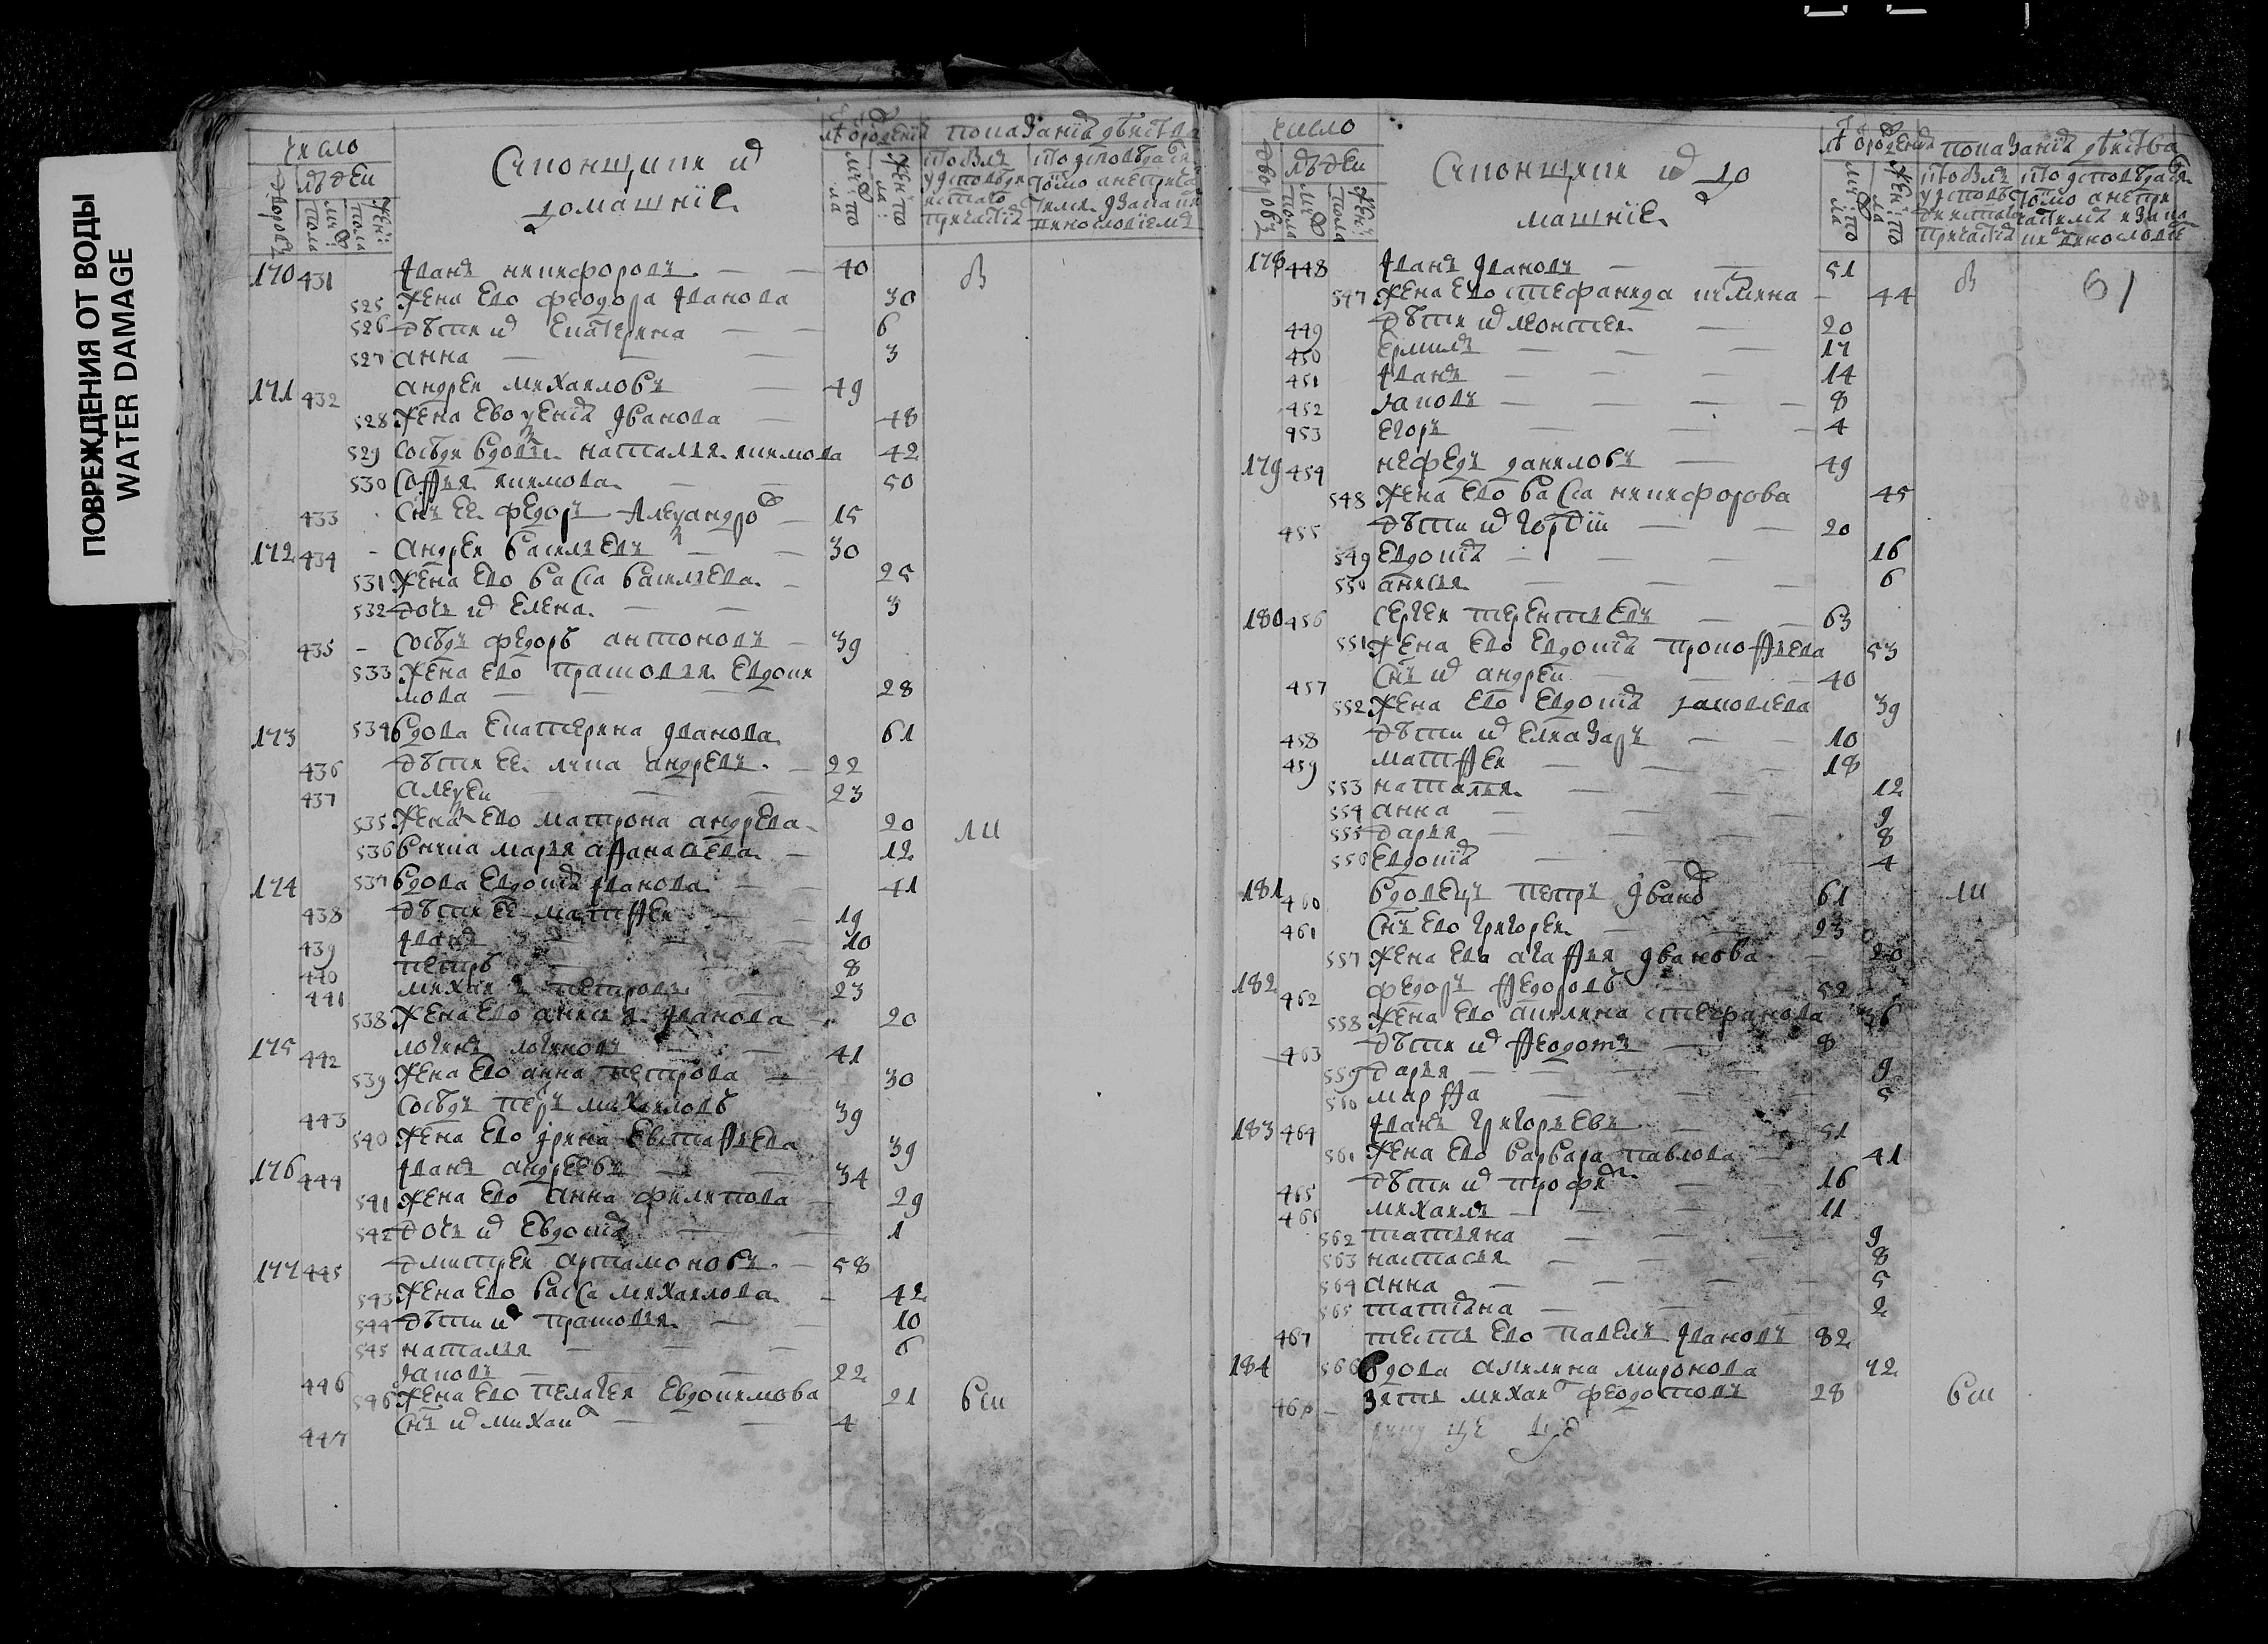 ПОВРЕЖДЕНИЯ ОТ ВОДЫ
WATER DAMAGE
число
людей
дворовъ
муж: пола
жен: пола
Скопщики их
домашніе
лѣ от рожденія
муж: по ла
жен: по ла
показаніе дѣйства
170 431 Иванъ никифоровъ 40
525 жена ево феодора иванова 30
526 дѣти их екатерина 6
527 анна 3
171 432 андреи михаиловъ 49
528 жена евгенія иванова 48
529 сосѣди вдовы наталья якимова 42
530 соѳья якимова 50
433 снъ ее федоръ александро 15
172 434 андреи василъевъ 30
531 жена ево васса василъева 25
532 дочь их елена 3
435 сосѣдъ федоръ антоновъ 39
533 жена ево прасковья евдоки
мова 28
173 534 вдова екатерина иванова 61
436 дѣти ее лука андревъ 22
437 алеѯеи 23
535 жена ево матрона андрева 20
536 внука марья аѳанасева 12
174 537 вдова евдокія иванова 41
438 дѣти ее матѳеи 19
439 иванъ 10
440 петръ 8
441 михаила петровъ 23
538 жена ево анисья иванова 20
175 442 логинъ логиновъ 41
539 жена ево анна петрова 30
443 сосѣдъ петръ михаиловъ 39
540 жена ево ирина евстаѳъева 39
176 444 иванъ андреевъ 34
541 жена ево анна филипова 29
542 дочь их евдокія 1
177 445 дмитреи артамоновъ 58
543 жена ево васса михаилова 42
544 дѣти их прасковья 10
545 наталья 6
446 яковъ 22
546 жена ево пелагея евдокимова 21
447 снъ их михаил 4
число
людей
дворовъ
муж: пола
жен: пола
Скопщики их до
машніе
муж: по ла
жен: по ла
показаніе дѣйства
178 448 Иванъ ивановъ 51 61
547 жена ево стефанида 44
449 дѣти их леонтеи 20
450 ермилъ 17
451 иванъ 14
452 яковъ 8
453 егоръ 4
179 454 нефедъ даниловъ 49
548 жена ево васса никифорова 45
455 дѣти их гордіи 20
549 евдокія 16
550 анисья 6
180 456 сергеи терентъевъ 63
551 жена ево евдокія прокоѳьева 53
457 снъ их андреи 40
552 жена ево евдокія яковлева 39
458 дѣти их елиазаръ 10
459 матѳеи 18
553 наталья 12
554 анна 9
555 дарья 8
556 евдокія 4
181 460 вдовецъ петръ иванов 61
461 снъ ево григореи 23
557 жена ево агаѳья иванова 20
182 462 федоръ ѳедоровъ 52
558 жена ево акилина стефанова 36
463 дѣти их ѳеодотъ 8
559 дарья 9
560 марѳа 5
183 464 иванъ григоръевъ 51
561 жена ево варвара павлова 41
465 дѣти их трофим 16
466 михаилъ 11
562 татьяна 9
563 настасья 8
564 анна 5
565 татіяна 2
467 тесть ево павелъ ивановъ 82
184 566 вдова акилина миронова 42
468 зять михаил феодотовъ 28